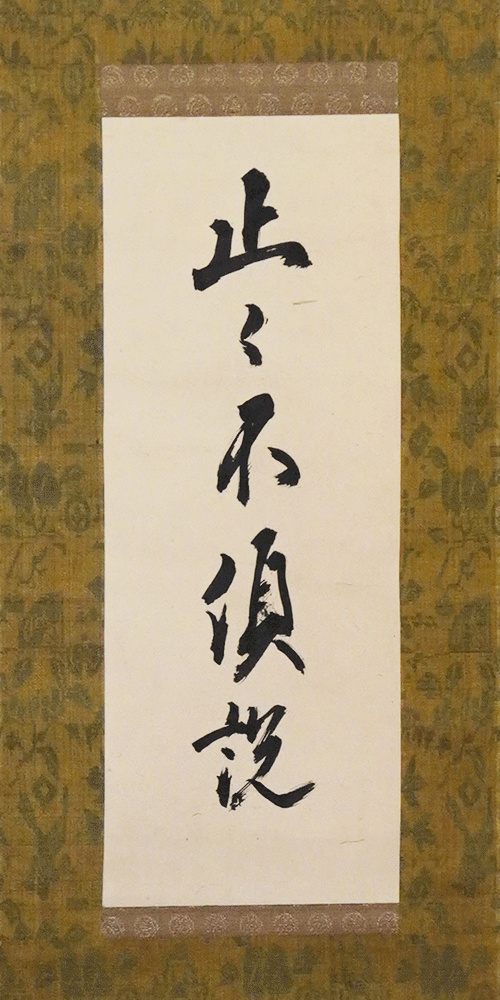 止々不須説